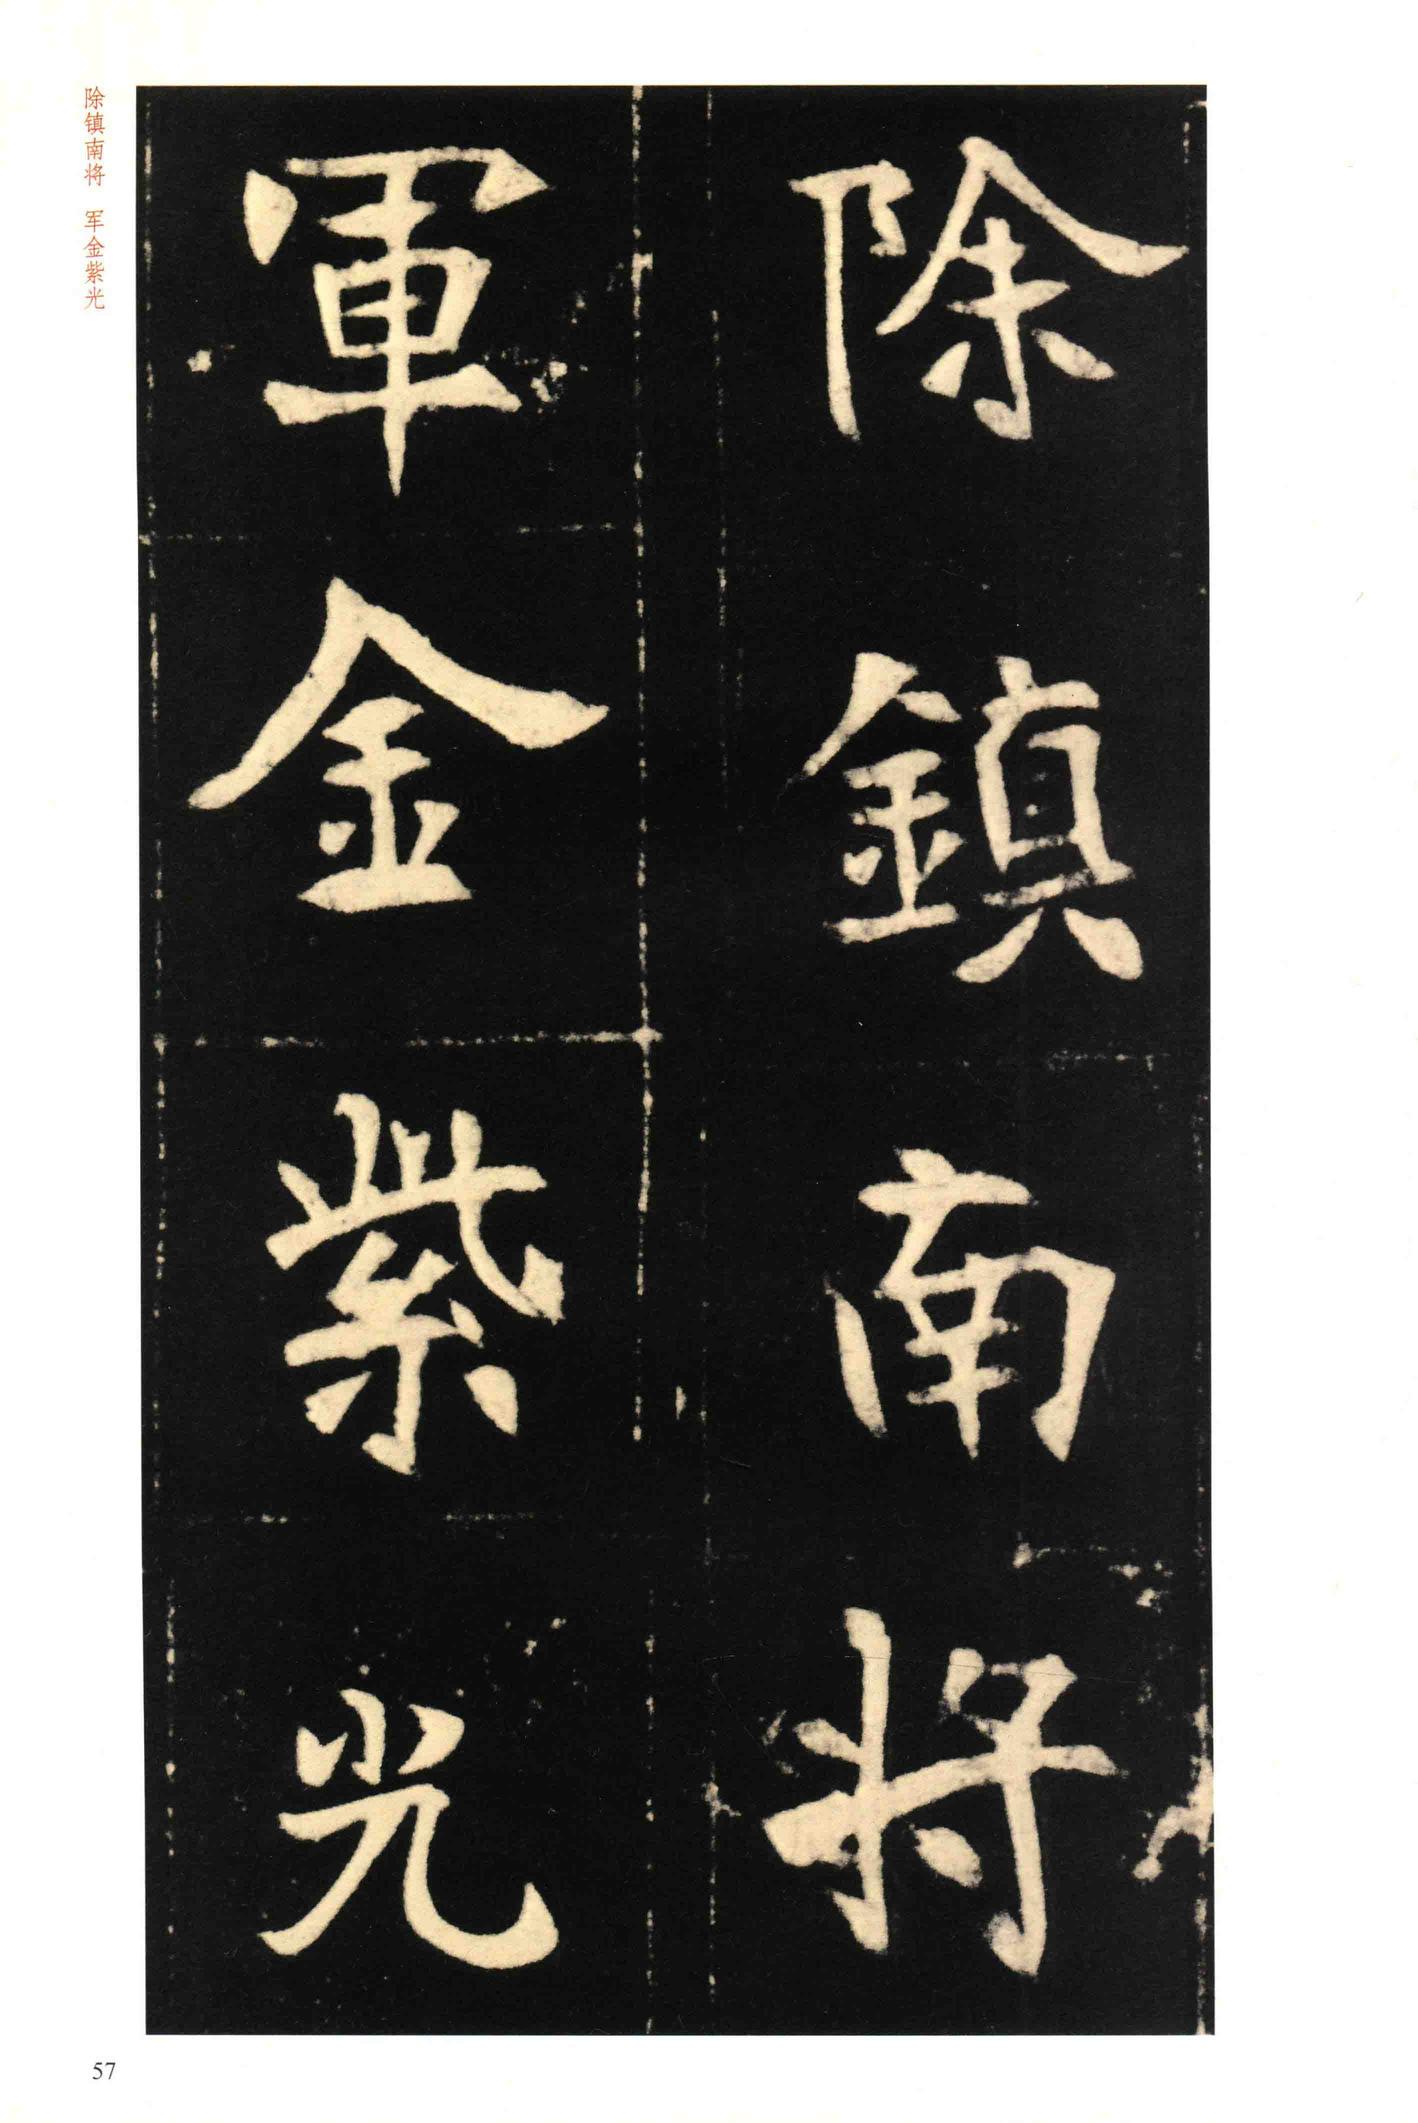 除鎮南将
軍金紫光
除镇南将 军金紫光
57